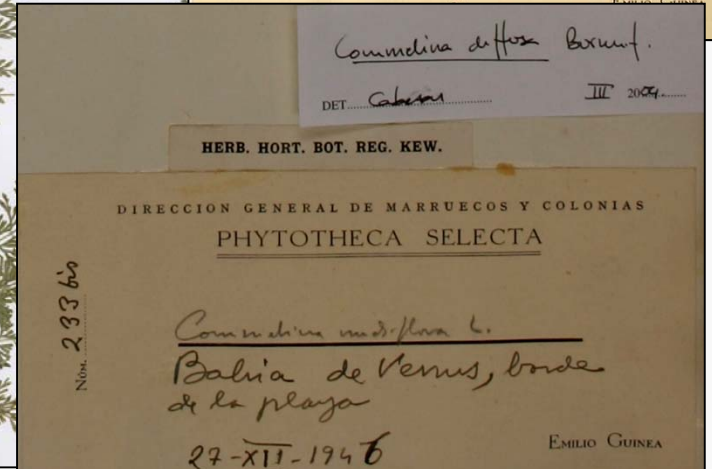 Commelina diffusa Burm.f.
DET. Cabezas III 2009
HERB. HORT. BOT. REG. KEW.
DIRECCION GENERAL DE MARRUECOS Y COLONIAS
PHYTOTHECA SELECTA
NÚM. 233 bis
Commelina nudiflora L.
Bahia de Venus, borde
de la playa
27-XII-1946
EMILIO GUINEA